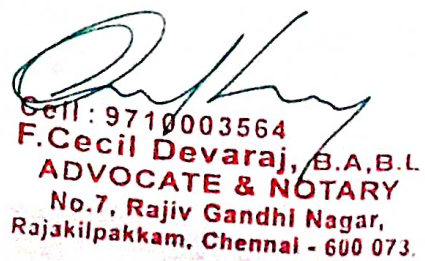 Cell : 9710003564
F.Cecil Devaraj, B.A,B.L
ADVOCATE & NOTARY
No.7, Rajiv Gandhi Nagar,
Rajakilpakkam, Chennai - 600 073.